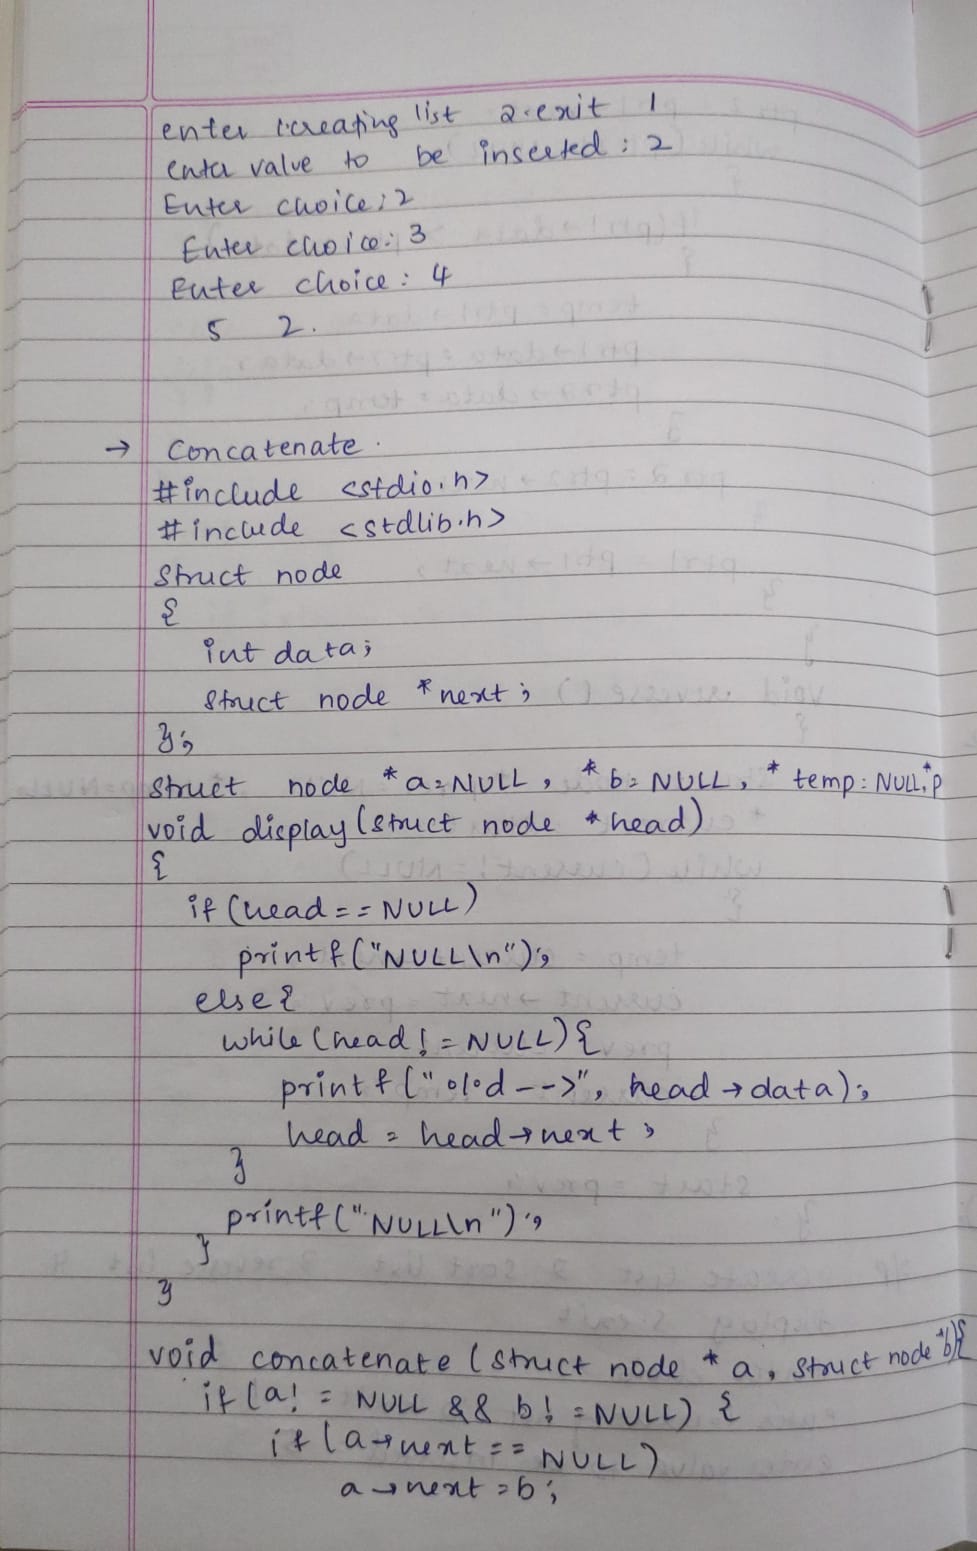 enter 1.creating list 2.exit 1
enter value to be inserted : 2
Enter choice : 2
Enter choice : 3
Enter choice : 4
5 2.
→ Concatenate .
#include <stdio.h>
#include <stdlib.h>
struct node
{
int data;
struct node *next;
};
struct node *a=NULL, *b=NULL, *temp=NULL,*p
void display(struct node *head)
{
if(head==NULL)
printf("NULL\n");
else{
while(head!=NULL){
printf("%d-->", head→data);
head = head→next;
}
printf("NULL\n");
}
}
void concatenate (struct node *a, struct node *b){
if(a!=NULL && b!=NULL) {
if(a→next==NULL)
a→next=b;